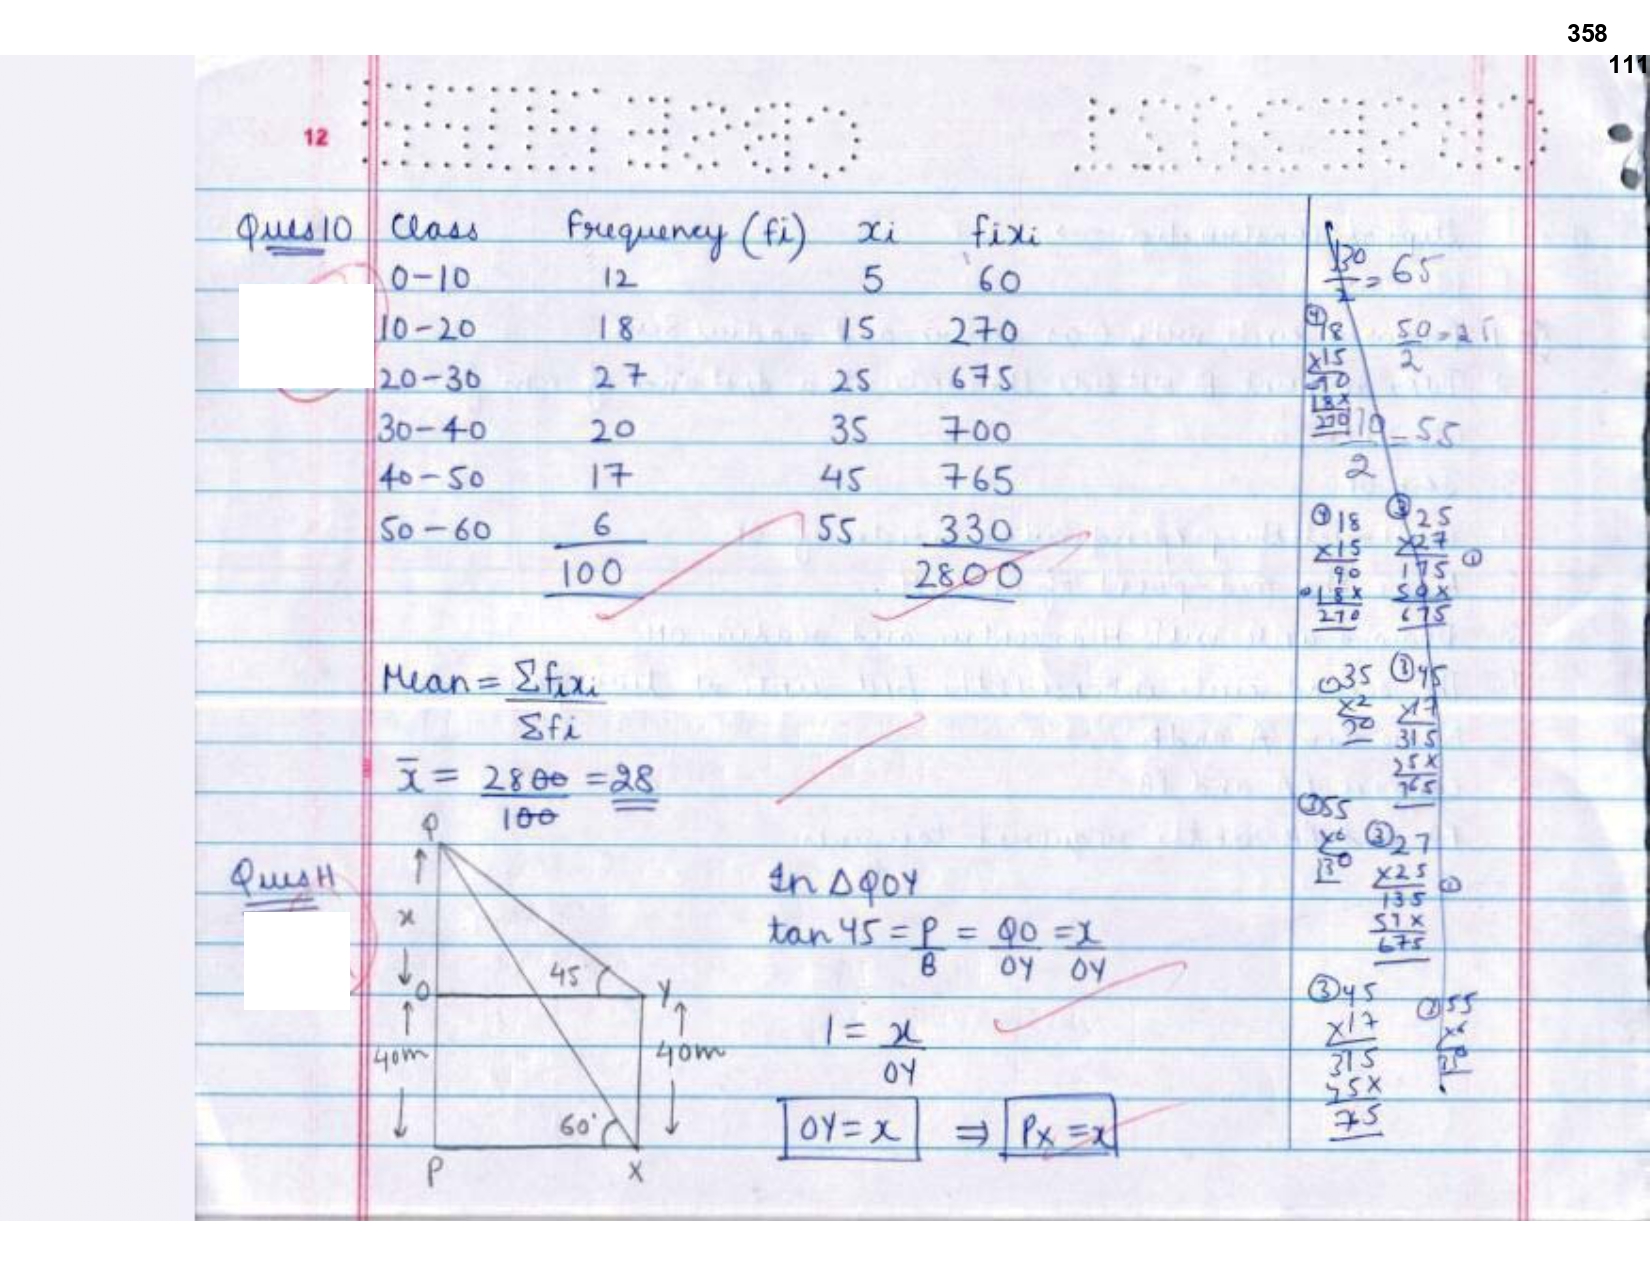 358
111
12
Ques 10 Class Frequency (fi) xi fixi
0-10 12 5 60
10-20 18 15 270
20-30 27 25 675
30-40 20 35 700
40-50 17 45 765
50-60 6 55 330
100 2800
Mean = Σfixi
Σfi
x̄ = 2800 = 28
100
Ques 11
Q
x
O
45
Y
40m
40m
60°
P
X
In ΔQOY
tan 45 = P = QO = x
B OY OY
1 = x
OY
OY = x ⇒ PX = x
130 = 65
2
18
x15
90
18x
270
50 = 25
2
110 = 55
2
18
x15
90
18x
270
25
x27
175
50x
675
35
x2
70
45
x17
315
765
55
x6
27
x25
135
675
45
x17
315
45x
55
x6